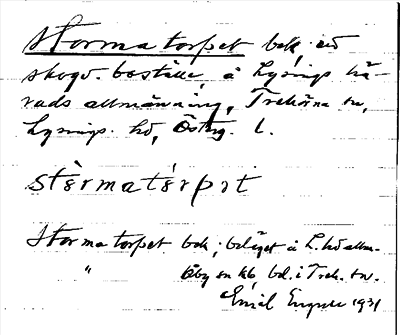 Stormatorpet bek. ss
skogv. boställe, å Lysings hä-
rads allmänning, Trehörna sn,
Lysings hd, Östg. l.
stòrmatórpət
Stormatorpet bek; beläget å L. hd allm.
" Åby sn kb bd. i Treh. sn.
Emil 1931